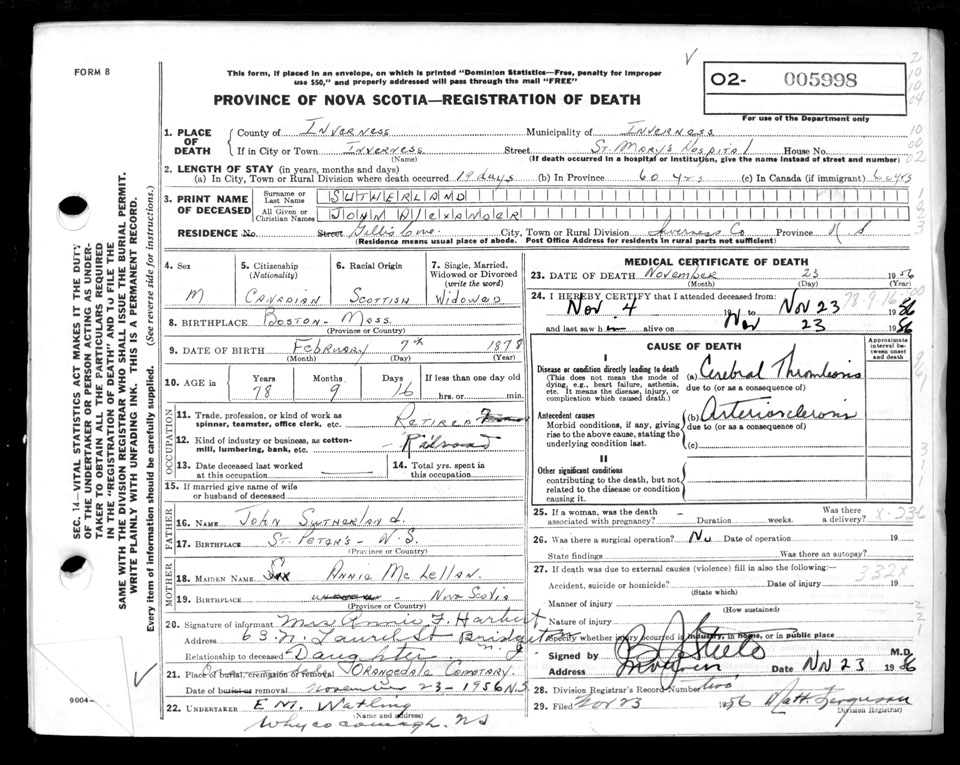 FORM 8
This form, if placed in an envelope, on which is printed "Dominion Statistics—Free, penalty for improper
use $50," and properly addressed will pass through the mail "FREE"
PROVINCE OF NOVA SCOTIA—REGISTRATION OF DEATH
02- 005998
For use of the Department only
1. PLACE OF DEATH
County of Inverness Municipality of Inverness
If in City or Town Inverness Street St. Mary's Hospital House No.
(Name) (If death occurred in a hospital or institution, give the name instead of street and number)
2. LENGTH OF STAY (in years, months and days)
(a) In City, Town or Rural Division where death occurred 19 days (b) In Province 60 yrs (c) In Canada (if immigrant) 60 yrs
3. PRINT NAME OF DECEASED
Surname or Last Name SUTHERLAND
All Given or Christian Names JOHN AlEXANDER
RESIDENCE No. Street Gillis Cove City, Town or Rural Division Inverness Co Province N S
(Residence means usual place of abode. Post Office Address for residents in rural parts not sufficient)
4. Sex M
5. Citizenship (Nationality) Canadian
6. Racial Origin Scottish
7. Single, Married, Widowed or Divorced (write the word) Widowed
8. BIRTHPLACE Boston - Mass.
(Province or Country)
9. DATE OF BIRTH February 7th 1878
(Month) (Day) (Year)
10. AGE in Years 78 Months 9 Days 16 If less than one day old hrs. or min.
OCCUPATION
11. Trade, profession, or kind of work as spinner, teamster, office clerk, etc. Retired
12. Kind of industry or business, as cotton-mill, lumbering, bank, etc. - Railroad
13. Date deceased last worked at this occupation
14. Total yrs. spent in this occupation
15. If married give name of wife or husband of deceased
FATHER
16. NAME John Sutherland.
17. BIRTHPLACE St. Peter's - N.S.
(Province or Country)
MOTHER
18. MAIDEN NAME Annie McLellan.
19. BIRTHPLACE - Nova Scotia
(Province or Country)
20. Signature of informant Mrs Annie F. Harbert
Address 63 N. Laurel St Bridgeton N. J
Relationship to deceased Daughter
21. Place of burial, cremation or removal Orangedale Cemetary.
Date of burial or removal November 23-1956 N.S.
22. UNDERTAKER E M. Watling
(Name and address)
Whycocomagh. NS
MEDICAL CERTIFICATE OF DEATH
23. DATE OF DEATH November 23 1956
(Month) (Day) (Year)
24. I HEREBY CERTIFY that I attended deceased from:
Nov 4 19 to Nov 23 1956
and last saw h im alive on Nov 23 1956
78-9-16
CAUSE OF DEATH
Approximate interval between onset and death
I
Disease or condition directly leading to death
(This does not mean the mode of dying, e.g., heart failure, asthenia, etc. It means the disease, injury, or complication which caused death.)
(a) Cerebral Thrombosis
due to (or as a consequence of)
Antecedent causes
Morbid conditions, if any, giving rise to the above cause, stating the underlying condition last.
(b) Arteriosclerosis
due to (or as a consequence of)
(c)
II
Other significant conditions contributing to the death, but not related to the disease or condition causing it.
25. If a woman, was the death associated with pregnancy? - Duration weeks. Was there a delivery?
26. Was there a surgical operation? No Date of operation 19
State findings Was there an autopsy?
27. If death was due to external causes (violence) fill in also the following:—
332X
Accident, suicide or homicide? Date of injury 19
(State which)
Manner of injury
(How sustained)
Nature of injury
Specify whether injury occurred in industry, in home, or in public place
Signed by M.D.
Address Date Nov 23 1956
28. Division Registrar's Record Number two
29. Filed Nov 23 1956 Matt. Ferguson
Division Registrar)
SEC. 14—VITAL STATISTICS ACT MAKES IT THE DUTY
OF THE UNDERTAKER OR PERSON ACTING AS UNDER-
TAKER TO OBTAIN ALL THE PARTICULARS REQUIRED
IN THE "REGISTRATION OF DEATH" AND TO FILE THE
SAME WITH THE DIVISION REGISTRAR WHO SHALL ISSUE THE BURIAL PERMIT.
WRITE PLAINLY WITH UNFADING INK. THIS IS A PERMANENT RECORD.
Every item of information should be carefully supplied. (See reverse side for instructions.)
9004—